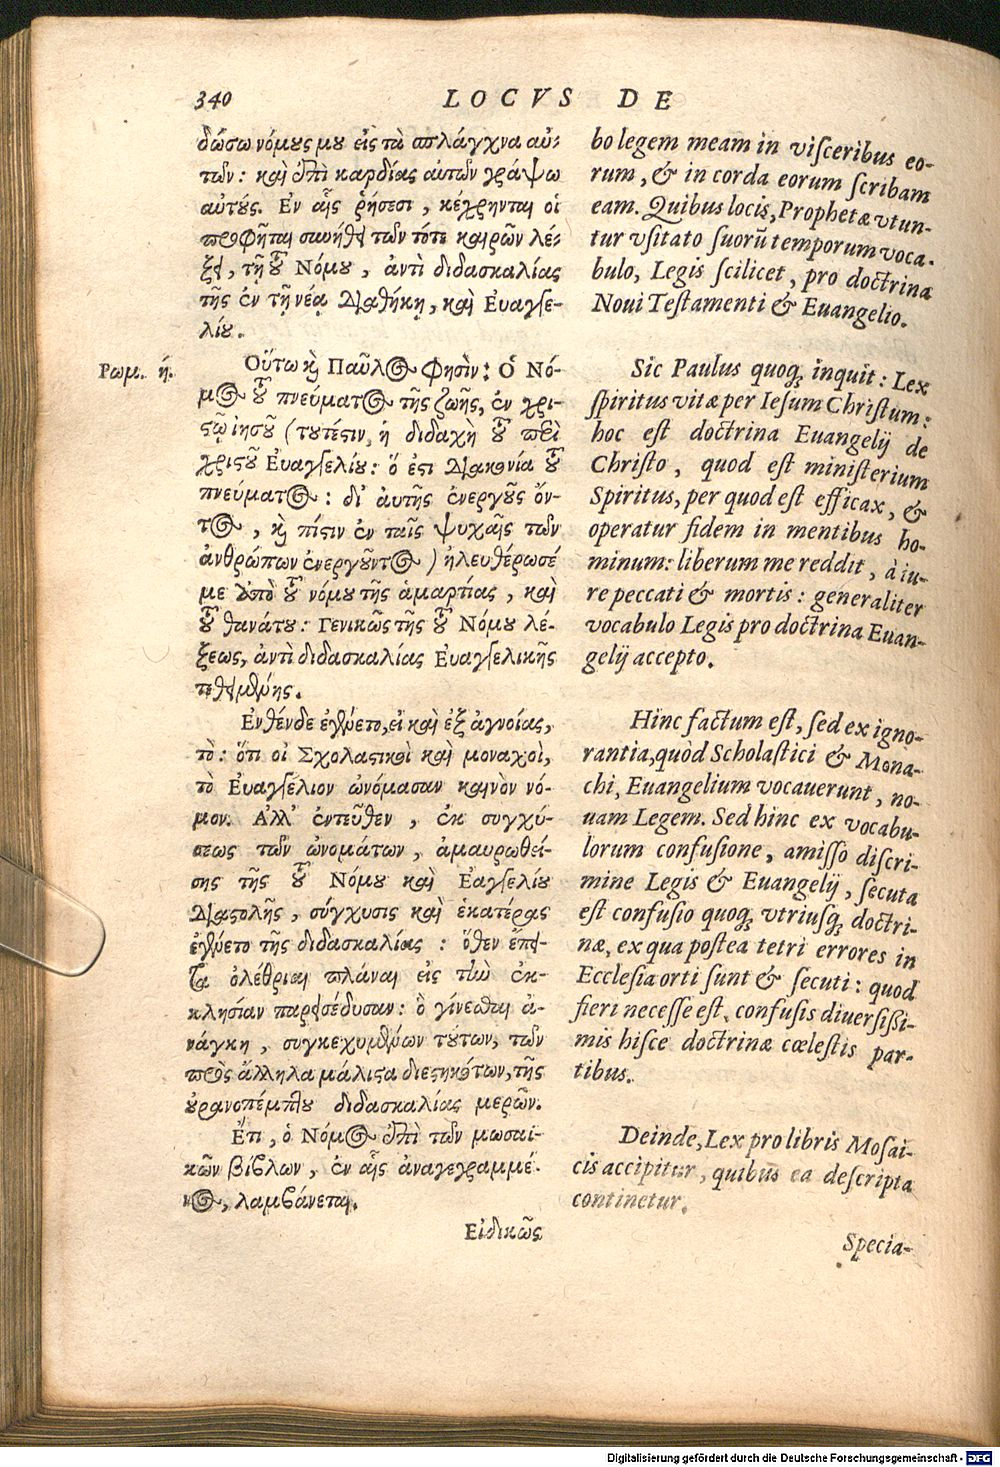 340
LOCVS DE
δώσω νόμους μου εἰς τὰ σπλάγχνα αὐ-
τῶν: καὶ ἐπὶ καρδίας αὐτῶν γράψω
αὐτούς. Εν αἷς ῥήσεσι, κέχρηνται οἱ
προφῆται συνήθει τῶν τότε καιρῶν λέ-
ξει, τῇ τοῦ Νόμου, ἀντὶ διδασκαλίας
τῆς ἐν τῇ νέᾳ Διαθήκῃ, καὶ Εὐαγγε-
λίου.
Ρωμ. ή.
Οὕτω καὶ Παῦλος φησὶν: Ὁ Νό-
μος τοῦ πνεύματος τῆς ζωῆς, ἐν χρι-
στῷ ἰησοῦ (τουτέστιν, ἡ διδαχὴ τοῦ περὶ
χριστοῦ Εὐαγγελίου: ὅ ἐστι Διακονία τοῦ
πνεύματος: δι' αὐτῆς ἐνεργοῦς ὄν-
τος, καὶ πίστιν ἐν ταῖς ψυχαῖς τῶν
ἀνθρώπων ἐνεργοῦντος) ἠλευθέρωσέ
με ἀπὸ τοῦ νόμου τῆς ἁμαρτίας, καὶ
τοῦ θανάτου: Γενικῶς τῆς τοῦ Νόμου λέ-
ξεως, ἀντὶ διδασκαλίας Εὐαγγελικῆς
τεθειμένης.
Ενθένδε ἐγένετο, εἰ καὶ ἐξ ἀγνοίας,
τὸ: ὅτι οἱ Σχολαστικοὶ καὶ μοναχοὶ,
τὸ Εὐαγγέλιον ὠνόμασαν καινὸν νό-
μον. Αλλ' ἐντεῦθεν, ἐκ συγχύ-
σεως τῶν ὠνομάτων, ἀμαυρωθεί-
σης τῆς τοῦ Νόμου καὶ Εαγγελίου
Διαστολῆς, σύγχυσις καὶ ἑκατέρας
ἐγένετο τῆς διδασκαλίας: ὅθεν ἔπει-
τα ὀλέθριαι πλάναι εἰς τὴν ἐκ-
κλησίαν παρεισέδυσαν: ὃ γίνεσθαι ἀ-
νάγκη, συγκεχυμένων τούτων, τῶν
πρὸς ἄλληλα μάλιστα διεστηκότων, τῆς
οὐρανοπέμπτου διδασκαλίας μερῶν.
Ἔτι, ὁ Νόμος ἐπὶ τῶν μωσαϊ-
κῶν βίβλων, ἐν αἷς ἀναγεγραμμέ-
νος, λαμβάνεται.
Εἰδικῶς
bo legem meam in visceribus eo-
rum, & in corda eorum scribam
eam. Quibus locis, Prophetæ vtun-
tur vsitato suorū temporum voca-
bulo, Legis scilicet, pro doctrina
Noui Testamenti & Euangelio.
Sic Paulus quoq; inquit: Lex
spiritus vitæ per Iesum Christum:
hoc est doctrina Euangelij de
Christo, quod est ministerium
Spiritus, per quod est efficax, &
operatur fidem in mentibus ho-
minum: liberum me reddit, à iu-
re peccati & mortis: generaliter
vocabulo Legis pro doctrina Euan-
gelij accepto.
Hinc factum est, sed ex igno-
rantia, quòd Scholastici & Mona-
chi, Euangelium vocauerunt, no-
uam Legem. Sed hinc ex vocabu-
lorum confusione, amisso discri-
mine Legis & Euangelij, secuta
est confusio quoq; vtriusq; doctri-
næ, ex qua postea tetri errores in
Ecclesia orti sunt & secuti: quod
fieri necesse est, confusis diuersißi-
mis hisce doctrinæ cœlestis par-
tibus.
Deinde, Lex pro libris Mosai-
cis accipitur, quibus ea descripta
continetur.
Specia-
Digitalisierung gefördert durch die Deutsche Forschungsgemeinschaft - DFG